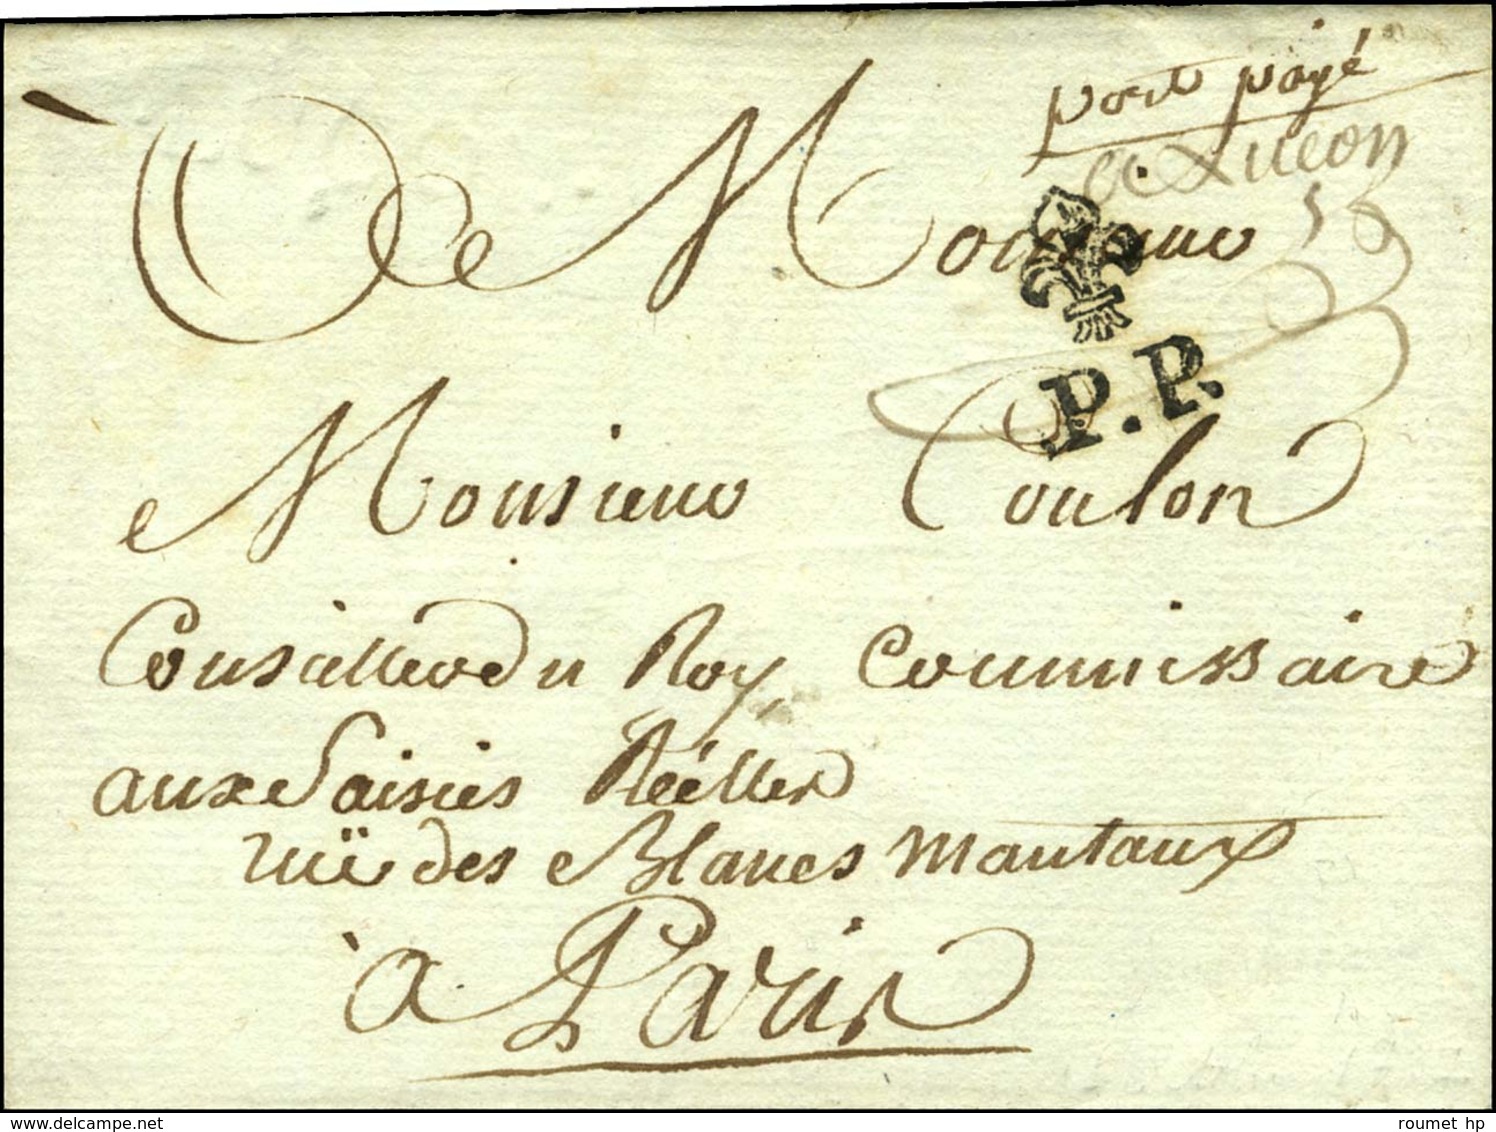 port payé
De Luçon
A Monsieur
P.P.
Monsieur Coulon
Conseiller du Roy, Commissaire
aux Saisies Réelles
ruë des Blancs Mantaux
à Paris
delcampe.net
roumet hp